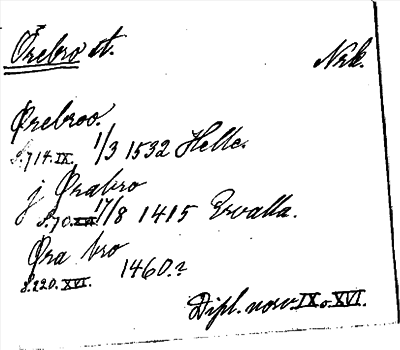 Örebro st. Nrk.
Ørebroo.
S. 714. IX. 1/3 1532 Helle.
j Ørabro
S. 70. XVI. 17/8 1415 Ervalla.
Øra bro
S. 220. XVI. 1460?
Dipl. norv. IX o. XVI.